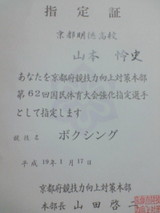 指定証
京都明徳高校
山本 怜史
あなたを京都府競技力向上対策本部
第62回国民体育大会強化指定選手
として指定します
競技名 ボクシング
平成19年1月17日
京都府競技力向上対策本部
本部長 山田啓二